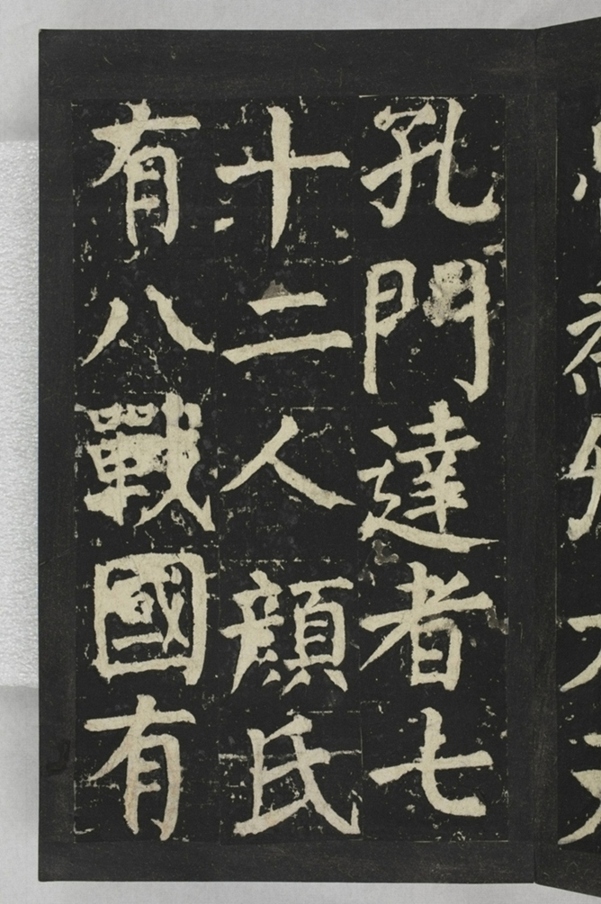 孔門達者七
十二人顏氏
有八戰國有